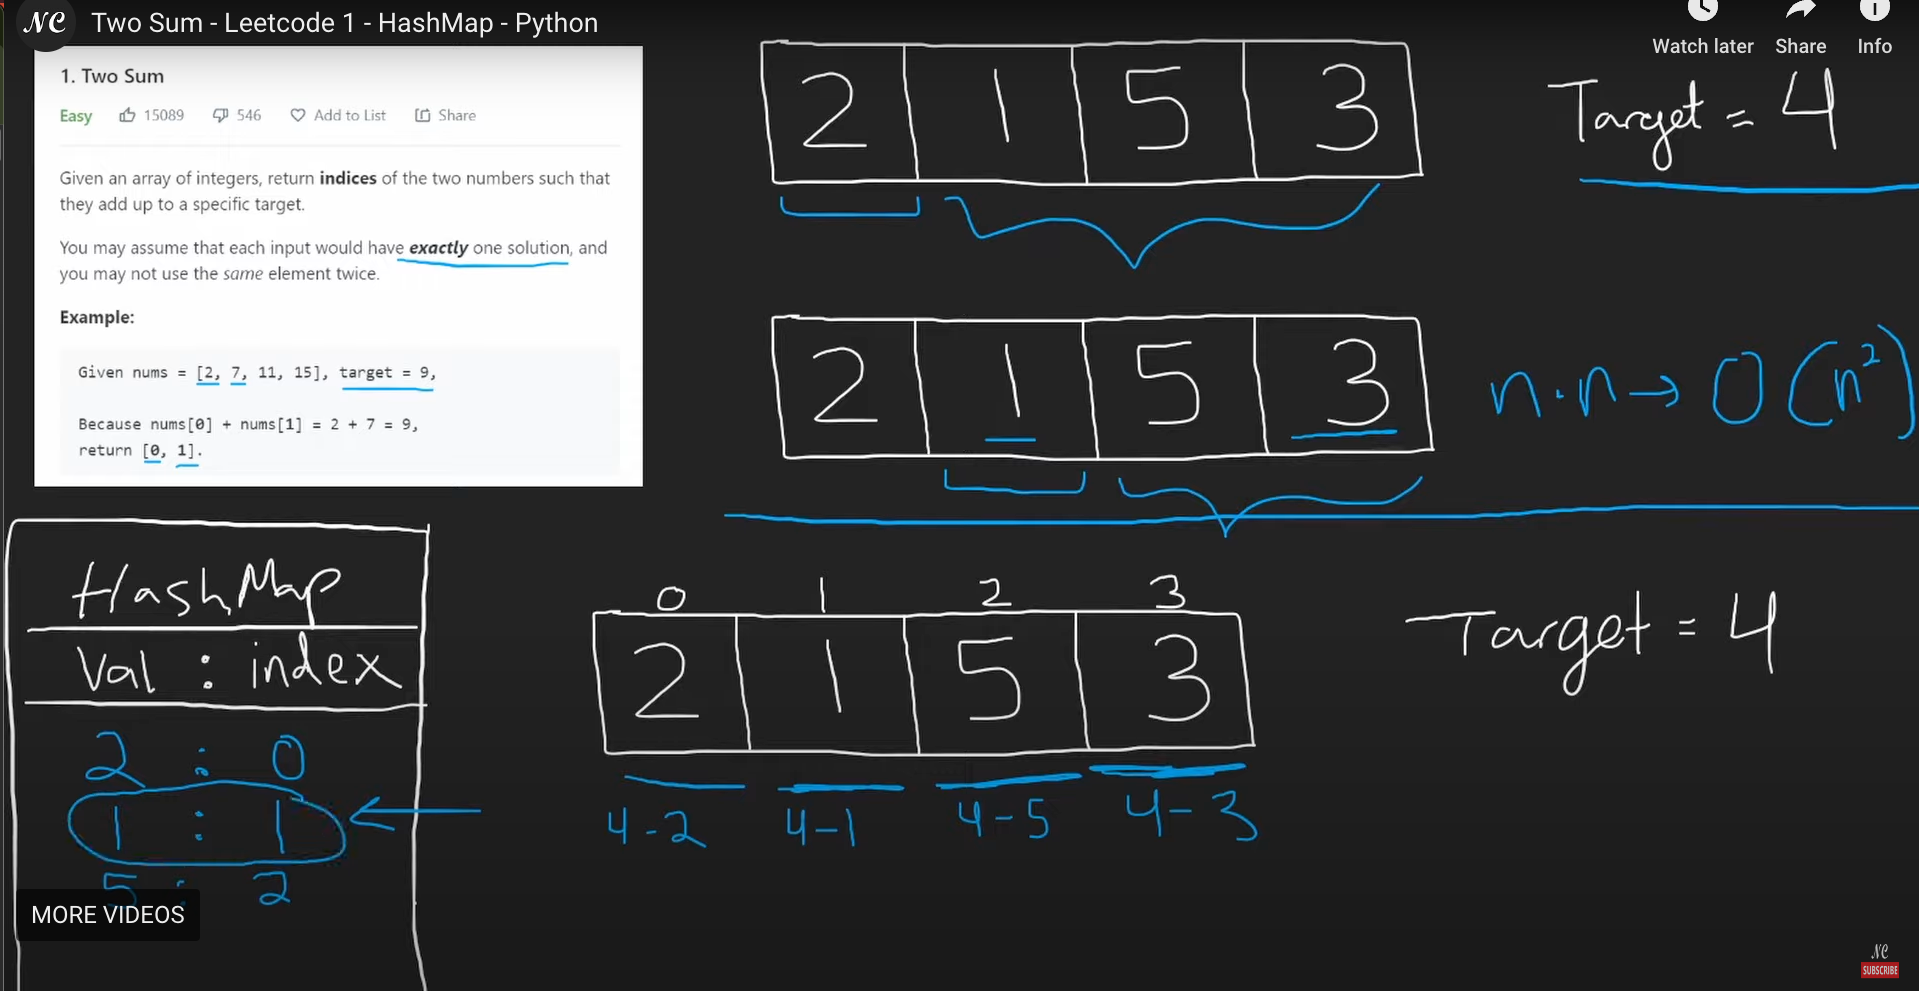 NC Two Sum - Leetcode 1 - HashMap - Python
Watch later Share Info
1. Two Sum
Easy 15089 546 Add to List Share
Given an array of integers, return indices of the two numbers such that
they add up to a specific target.
You may assume that each input would have exactly one solution, and
you may not use the same element twice.
Example:
Given nums = [2, 7, 11, 15], target = 9,
Because nums[0] + nums[1] = 2 + 7 = 9,
return [0, 1].
2 1 5 3
Target = 4
2 1 5 3
n·n→ O(n²)
HashMap
Val : index
2 : 0
1 : 1
5 : 2
0 1 2 3
2 1 5 3
4-2 4-1 4-5 4-3
Target = 4
MORE VIDEOS
NC
SUBSCRIBE